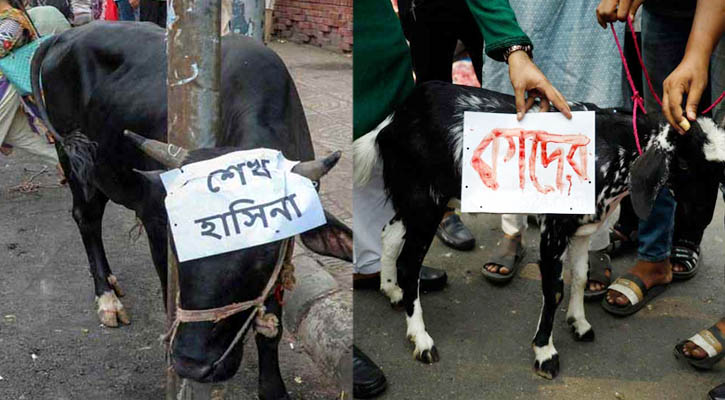 শেখ
হাসিনা
কাদের